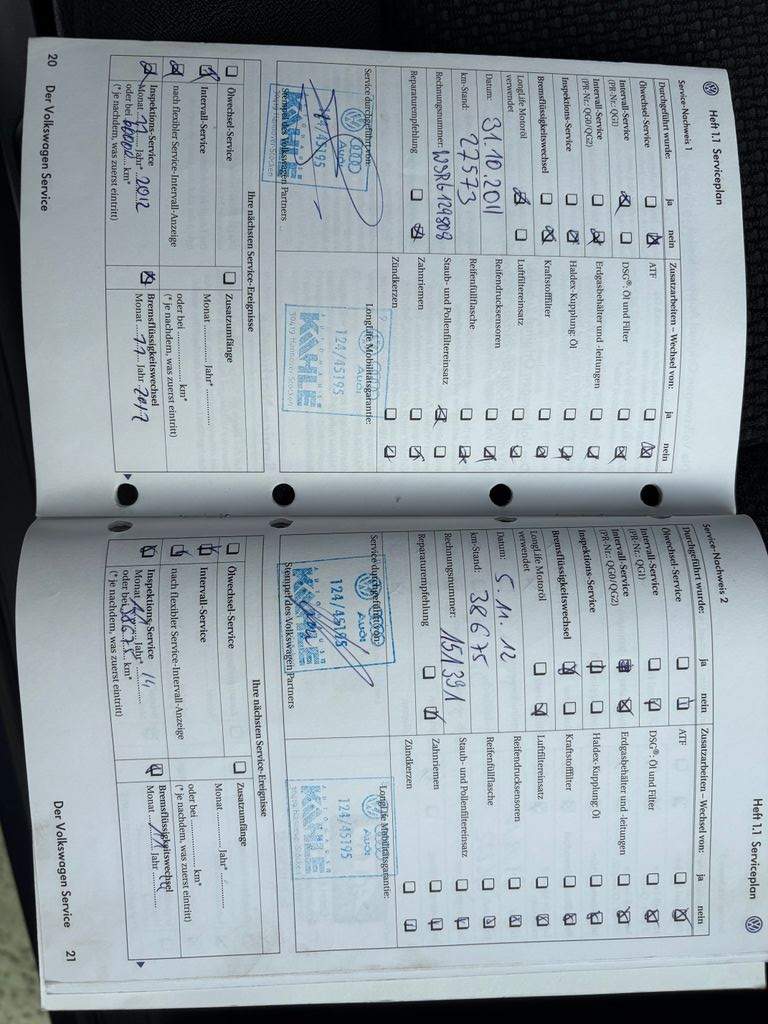 Heft 1.1 Serviceplan
Service-Nachweis 1
Durchgeführt wurde: ja nein
Ölwechsel-Service
Intervall-Service
(PR-Nr.: QG1)
Intervall-Service
(PR-Nr.: QG0/QG2)
Inspektions-Service
Bremsflüssigkeitswechsel
LongLife Motoröl
verwendet
Datum: 31.10.2011
km-Stand: 27573
Rechnungsnummer: WSRG129809
Reparaturempfehlung
Service durchgeführt von:
Audi
124/45195
KAHLE
30419 Hannover-Stöcken
Stempel des Volkswagen Partners
Zusatzarbeiten – Wechsel von: ja nein
ATF
DSG®: Öl und Filter
Erdgasbehälter und -leitungen
Haldex-Kupplung: Öl
Kraftstofffilter
Luftfiltereinsatz
Reifendrucksensoren
Reifenfüllflasche
Staub- und Pollenfiltereinsatz
Zahnriemen
Zündkerzen
LongLife Mobilitätsgarantie:
Audi
124/45195
AUTOHAUS
KAHLE
30419 Hannover-Stöcken
Ihre nächsten Service-Ereignisse
Ölwechsel-Service
Intervall-Service
nach flexibler Service-Intervall-Anzeige
Inspektions-Service
Monat 11 Jahr* 2012
oder bei km*
(* je nachdem, was zuerst eintritt)
Zusatzumfänge
Monat Jahr*
oder bei km*
(* je nachdem, was zuerst eintritt)
Bremsflüssigkeitswechsel
Monat 11 Jahr 2012
20 Der Volkswagen Service
Heft 1.1 Serviceplan
Service-Nachweis 2
Durchgeführt wurde: ja nein
Ölwechsel-Service
Intervall-Service
(PR-Nr.: QG1)
Intervall-Service
(PR-Nr.: QG0/QG2)
Inspektions-Service
Bremsflüssigkeitswechsel
LongLife Motoröl
verwendet
Datum: 5.11.12
km-Stand: 38675
Rechnungsnummer: 151391
Reparaturempfehlung
Service durchgeführt von:
Audi
124/45195
AUTOHAUS
KAHLE
Stempel des Volkswagen Partners
Zusatzarbeiten – Wechsel von: ja nein
ATF
DSG®: Öl und Filter
Erdgasbehälter und -leitungen
Haldex-Kupplung: Öl
Kraftstofffilter
Luftfiltereinsatz
Reifendrucksensoren
Reifenfüllflasche
Staub- und Pollenfiltereinsatz
Zahnriemen
Zündkerzen
LongLife Mobilitätsgarantie:
Audi
124/45195
AUTOHAUS
KAHLE
30419 Hannover-Stöcken
Ihre nächsten Service-Ereignisse
Ölwechsel-Service
Intervall-Service
nach flexibler Service-Intervall-Anzeige
Inspektions-Service
Monat 11 Jahr* 14
oder bei 58675 km*
(* je nachdem, was zuerst eintritt)
Zusatzumfänge
Monat Jahr*
oder bei km*
(* je nachdem, was zuerst eintritt)
Bremsflüssigkeitswechsel
Monat 11 Jahr 14
Der Volkswagen Service 21